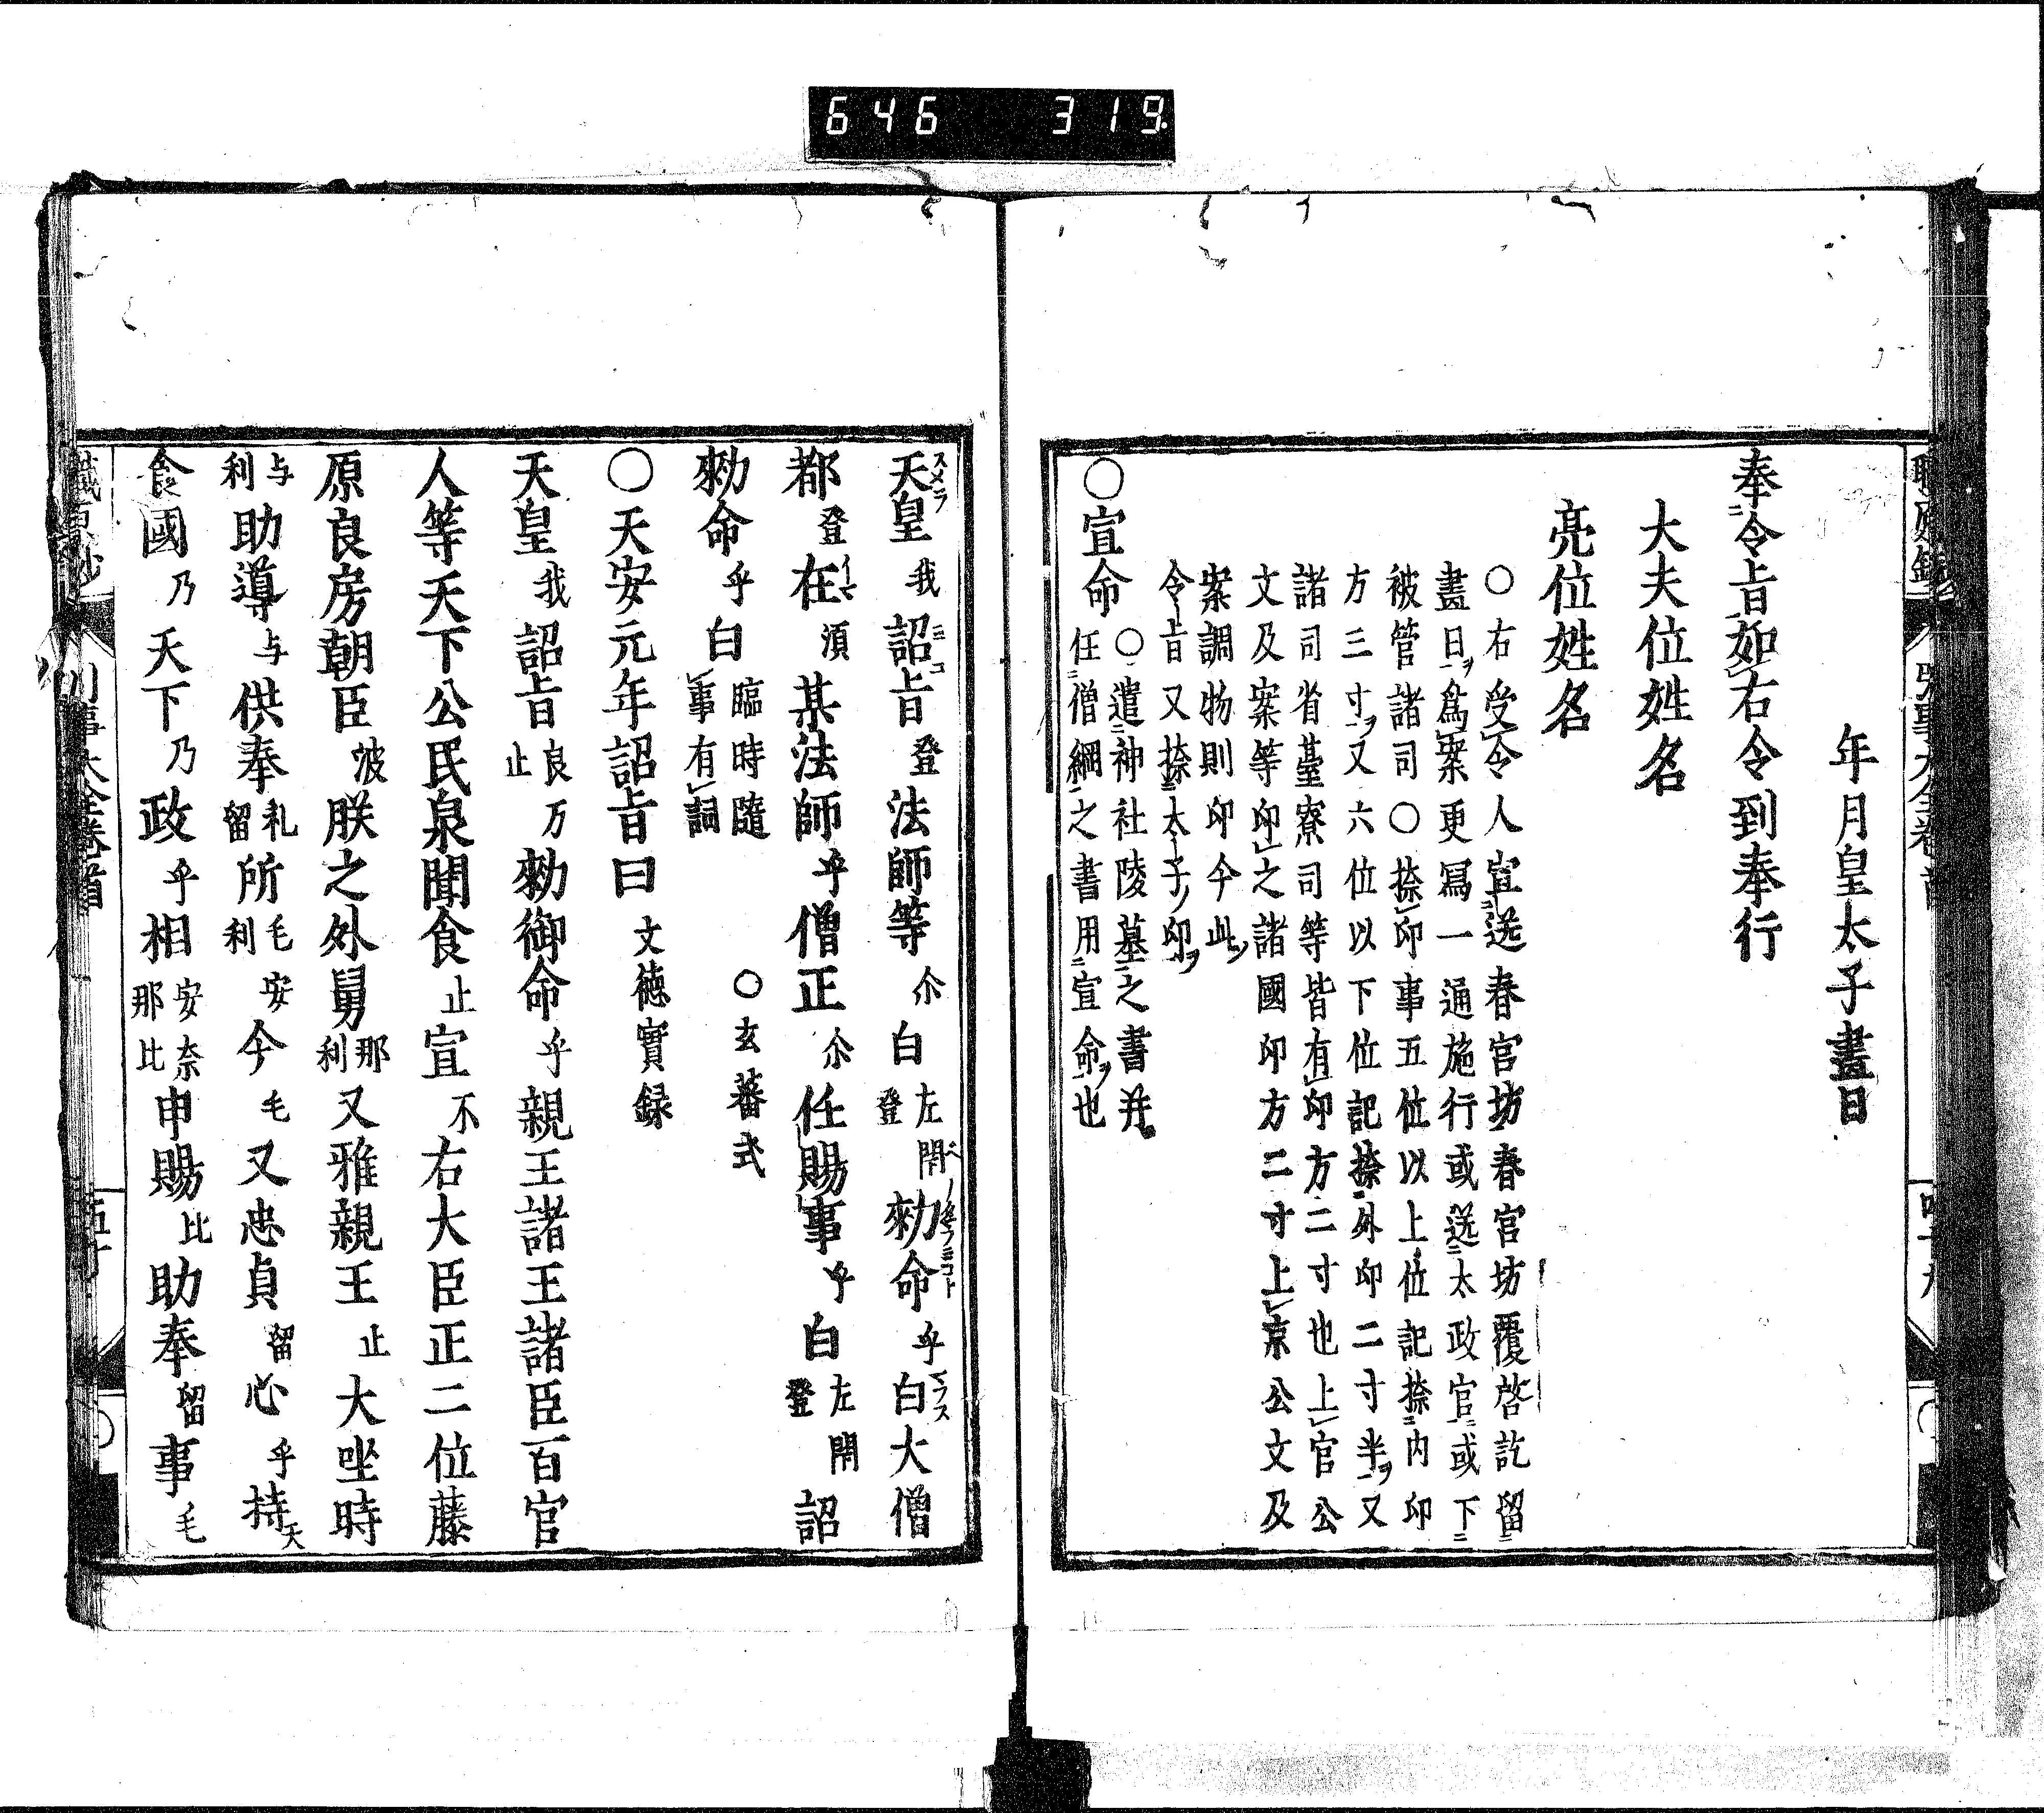 646 319
年月皇太子畫日
奉令旨如右令到奉行
大夫位姓名
亮位姓名
〇右受令人宣送春宮坊春宮坊覆啓訖留
畫日ヲ爲案更寫一通施行或送太政官或下
被管諸司〇捺印事五位以上位記捺内印
方三寸ヲ又六位以下位記捺外印二寸半ヲ又
諸司省臺寮司等皆有印方二寸也上官公
文及案等印之諸國印方二寸上京公文及
案調物則印今此ノ
令旨又捺太子ノ印ヲ
〇宣命
〇遣神社陵墓之書并
任僧綱之書用宣命ヲ也
天皇我詔旨登法師等尓白左登開勅命乎白大僧
都登在須某法師乎僧正尓任賜事乎白左登開詔
勅命乎白臨時隨事有詞 〇玄蕃式
〇天安元年詔旨曰 文徳實録
天皇我詔旨良止万勅御命乎親王諸王諸臣百官
人等天下公民泉聞食止宣不右大臣正二位藤
原良房朝臣波朕之外舅那利又雅親王止大坐時
与利助導与供奉礼留所毛利安今毛又忠貞留心乎持天
食國乃天下乃政乎相安奈那比申賜比助奉留事毛